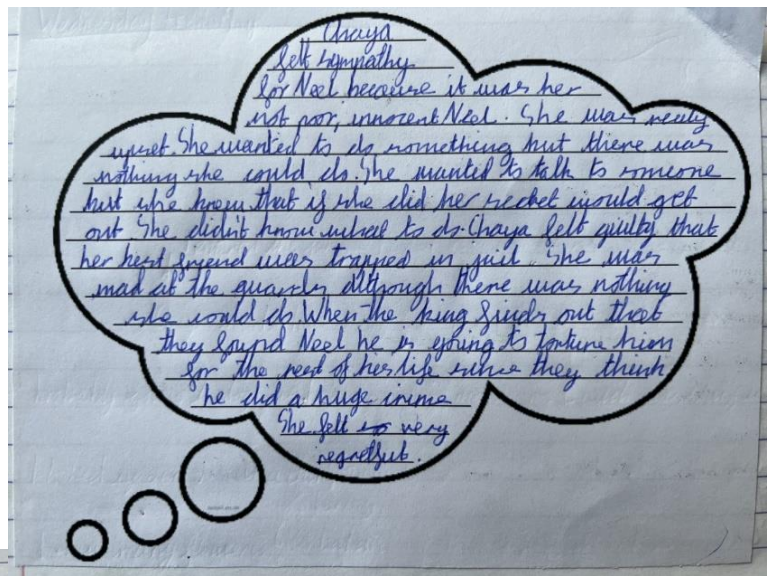 Chaya
felt sympathy
for Neel because it was her
not poor, innocent Neel. She was really
upset. She wanted to do something but there was
nothing she could do. She wanted to talk to someone
but she knew that if she did her secret would get
out. She didn't know what to do. Chaya felt guilty that
her best friend was trapped in jail. She was
mad at the guards although there was nothing
she could do. When the king finds out that
they found Neel he is going to torture him
for the rest of his life since they think
he did a huge crime
She felt so very
regretful.